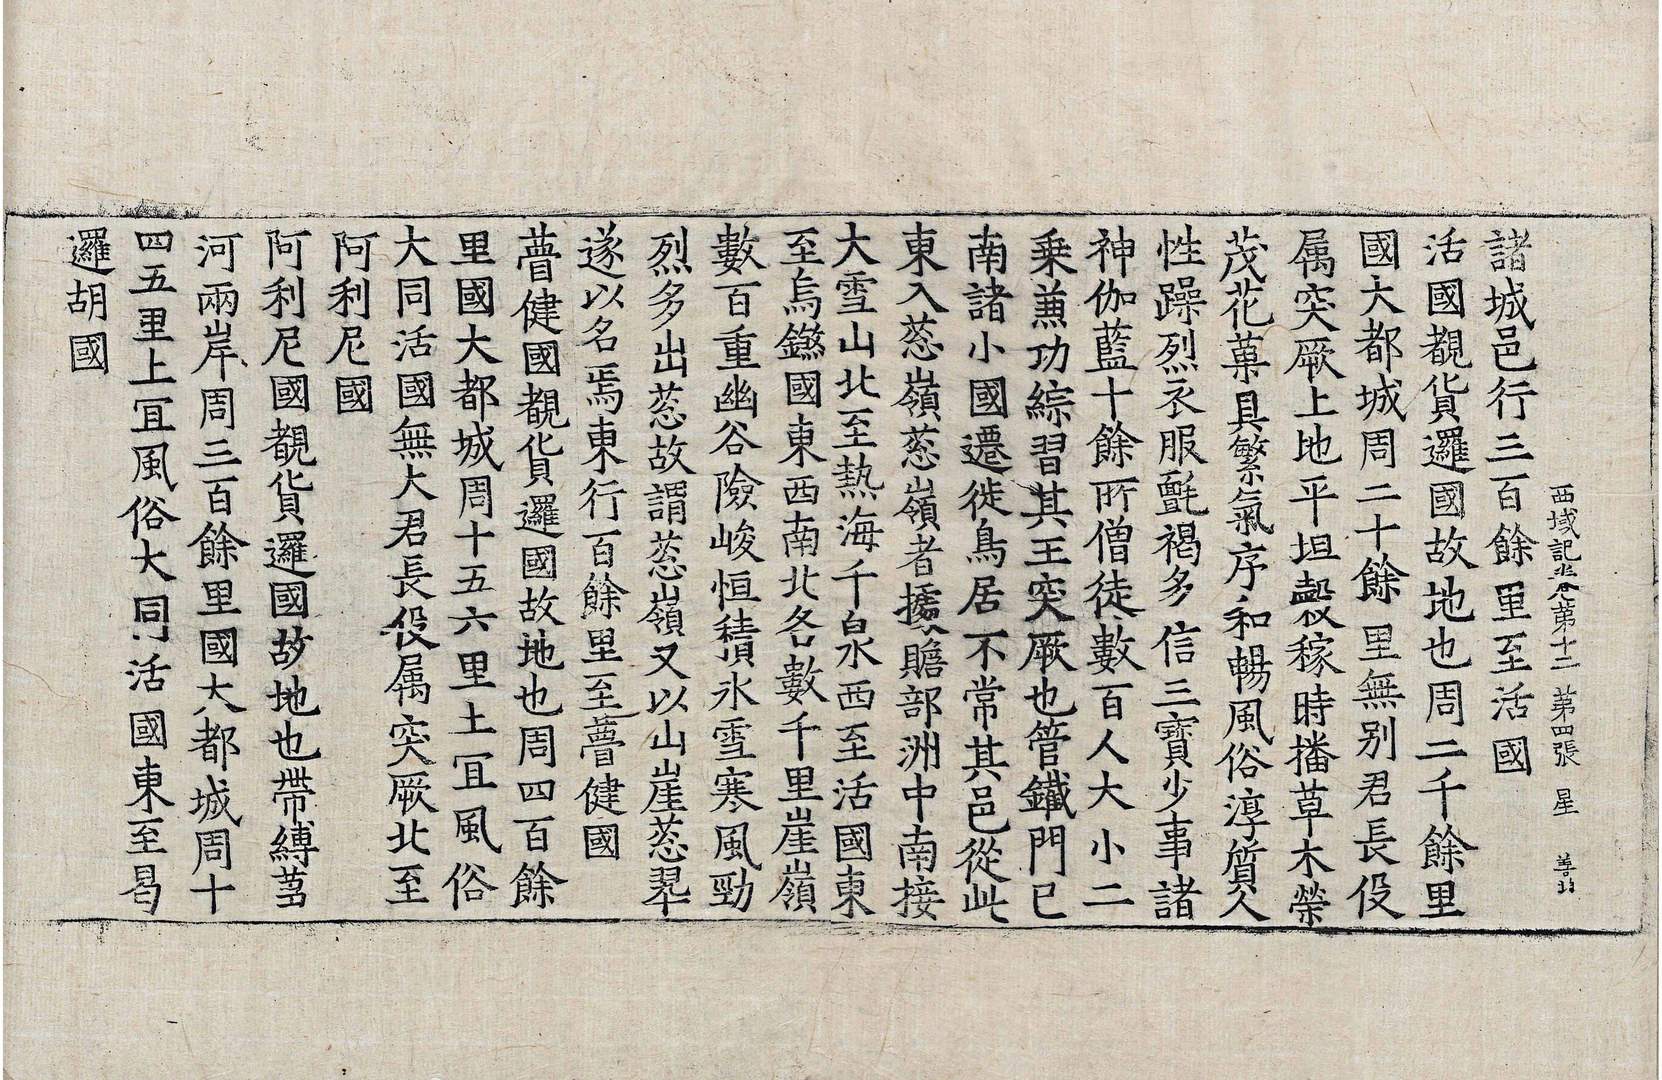 西域記卷第十二 第四張 星
諸城邑行三百餘里至活國
活國覩貨邏國故地也周二千餘里
國大都城周二十餘里無別君長伇
属突厥上地平坦穀稼時播草木榮
茂花菓具繁氣序和暢風俗淳質人
性躁烈衣服㲲褐多信三寶少事諸
神伽藍十餘所僧徒數百人大小二
乗兼功綜習其王突厥也管鐵門已
南諸小國遷徙鳥居不常其邑從此
東入葱嶺葱嶺者據贍部洲中南接
大雪山北至熱海千泉西至活國東
至烏鎩國東西南北各數千里崖嶺
數百重幽谷險峻恒積氷雪寒風勁
烈多出葱故謂葱嶺又以山崖葱翠
遂以名焉東行百餘里至瞢健國
瞢健國覩貨邏國故地也周四百餘
里國大都城周十五六里土冝風俗
大同活國無大君長伇属突厥北至
阿利尼國
阿利尼國覩貨邏國故地也帶縛芻
河兩岸周三百餘里國大都城周十
四五里上冝風俗大同活國東至曷
邏胡國